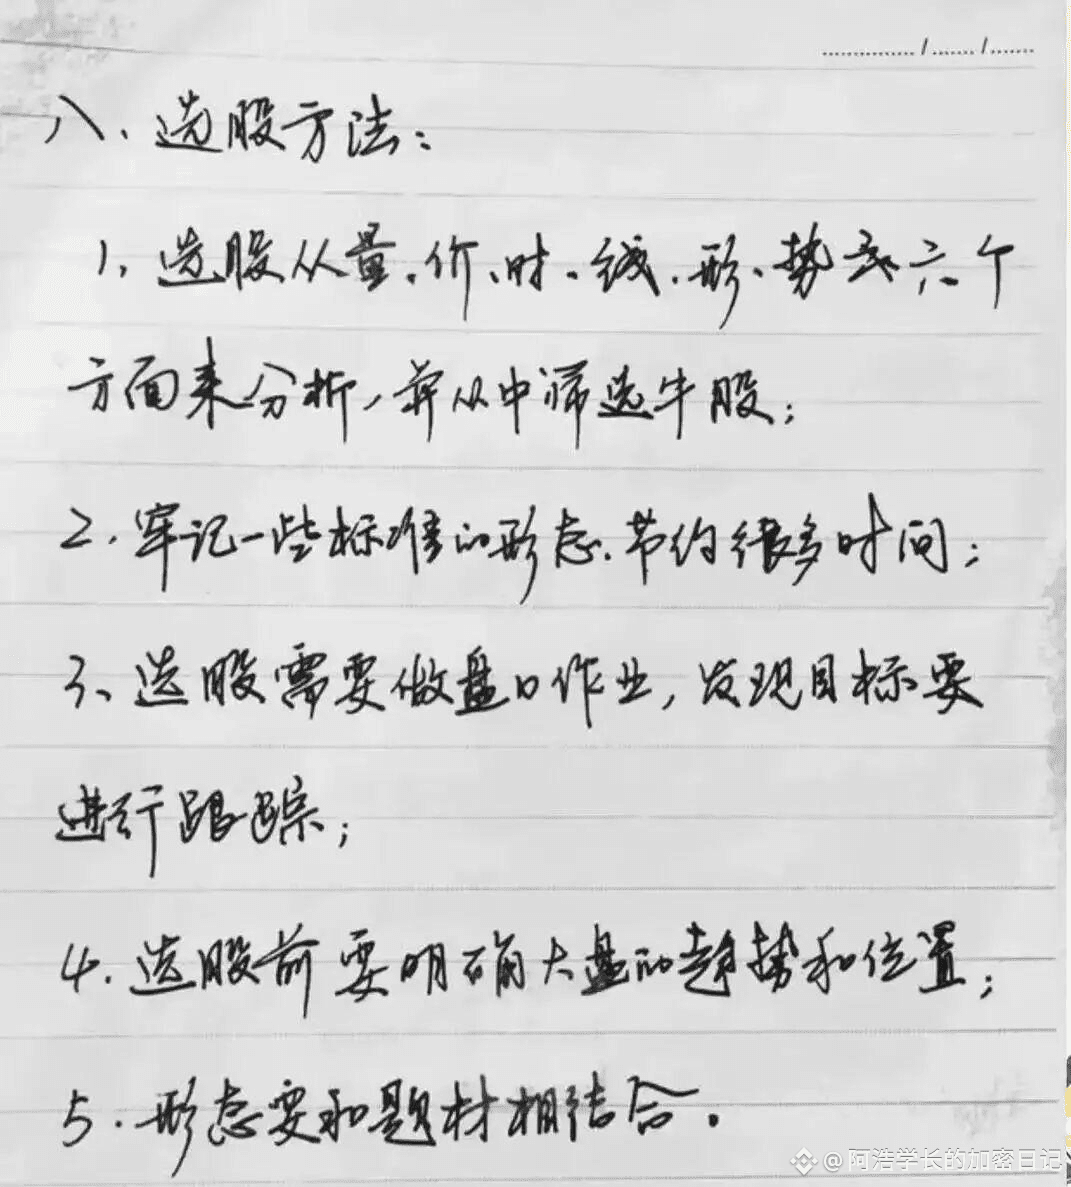 ....... / ....... / .......
八、选股方法：
1、选股从量、价、时、线、形、势这六个
方面来分析，并从中筛选牛股；
2、牢记一些标准的形态、节约很多时间；
3、选股需要做盘口作业，发现目标要
进行跟踪；
4、选股前要明确大盘的趋势和位置；
5、形态要和题材相结合。
@阿浩学长的加密日记